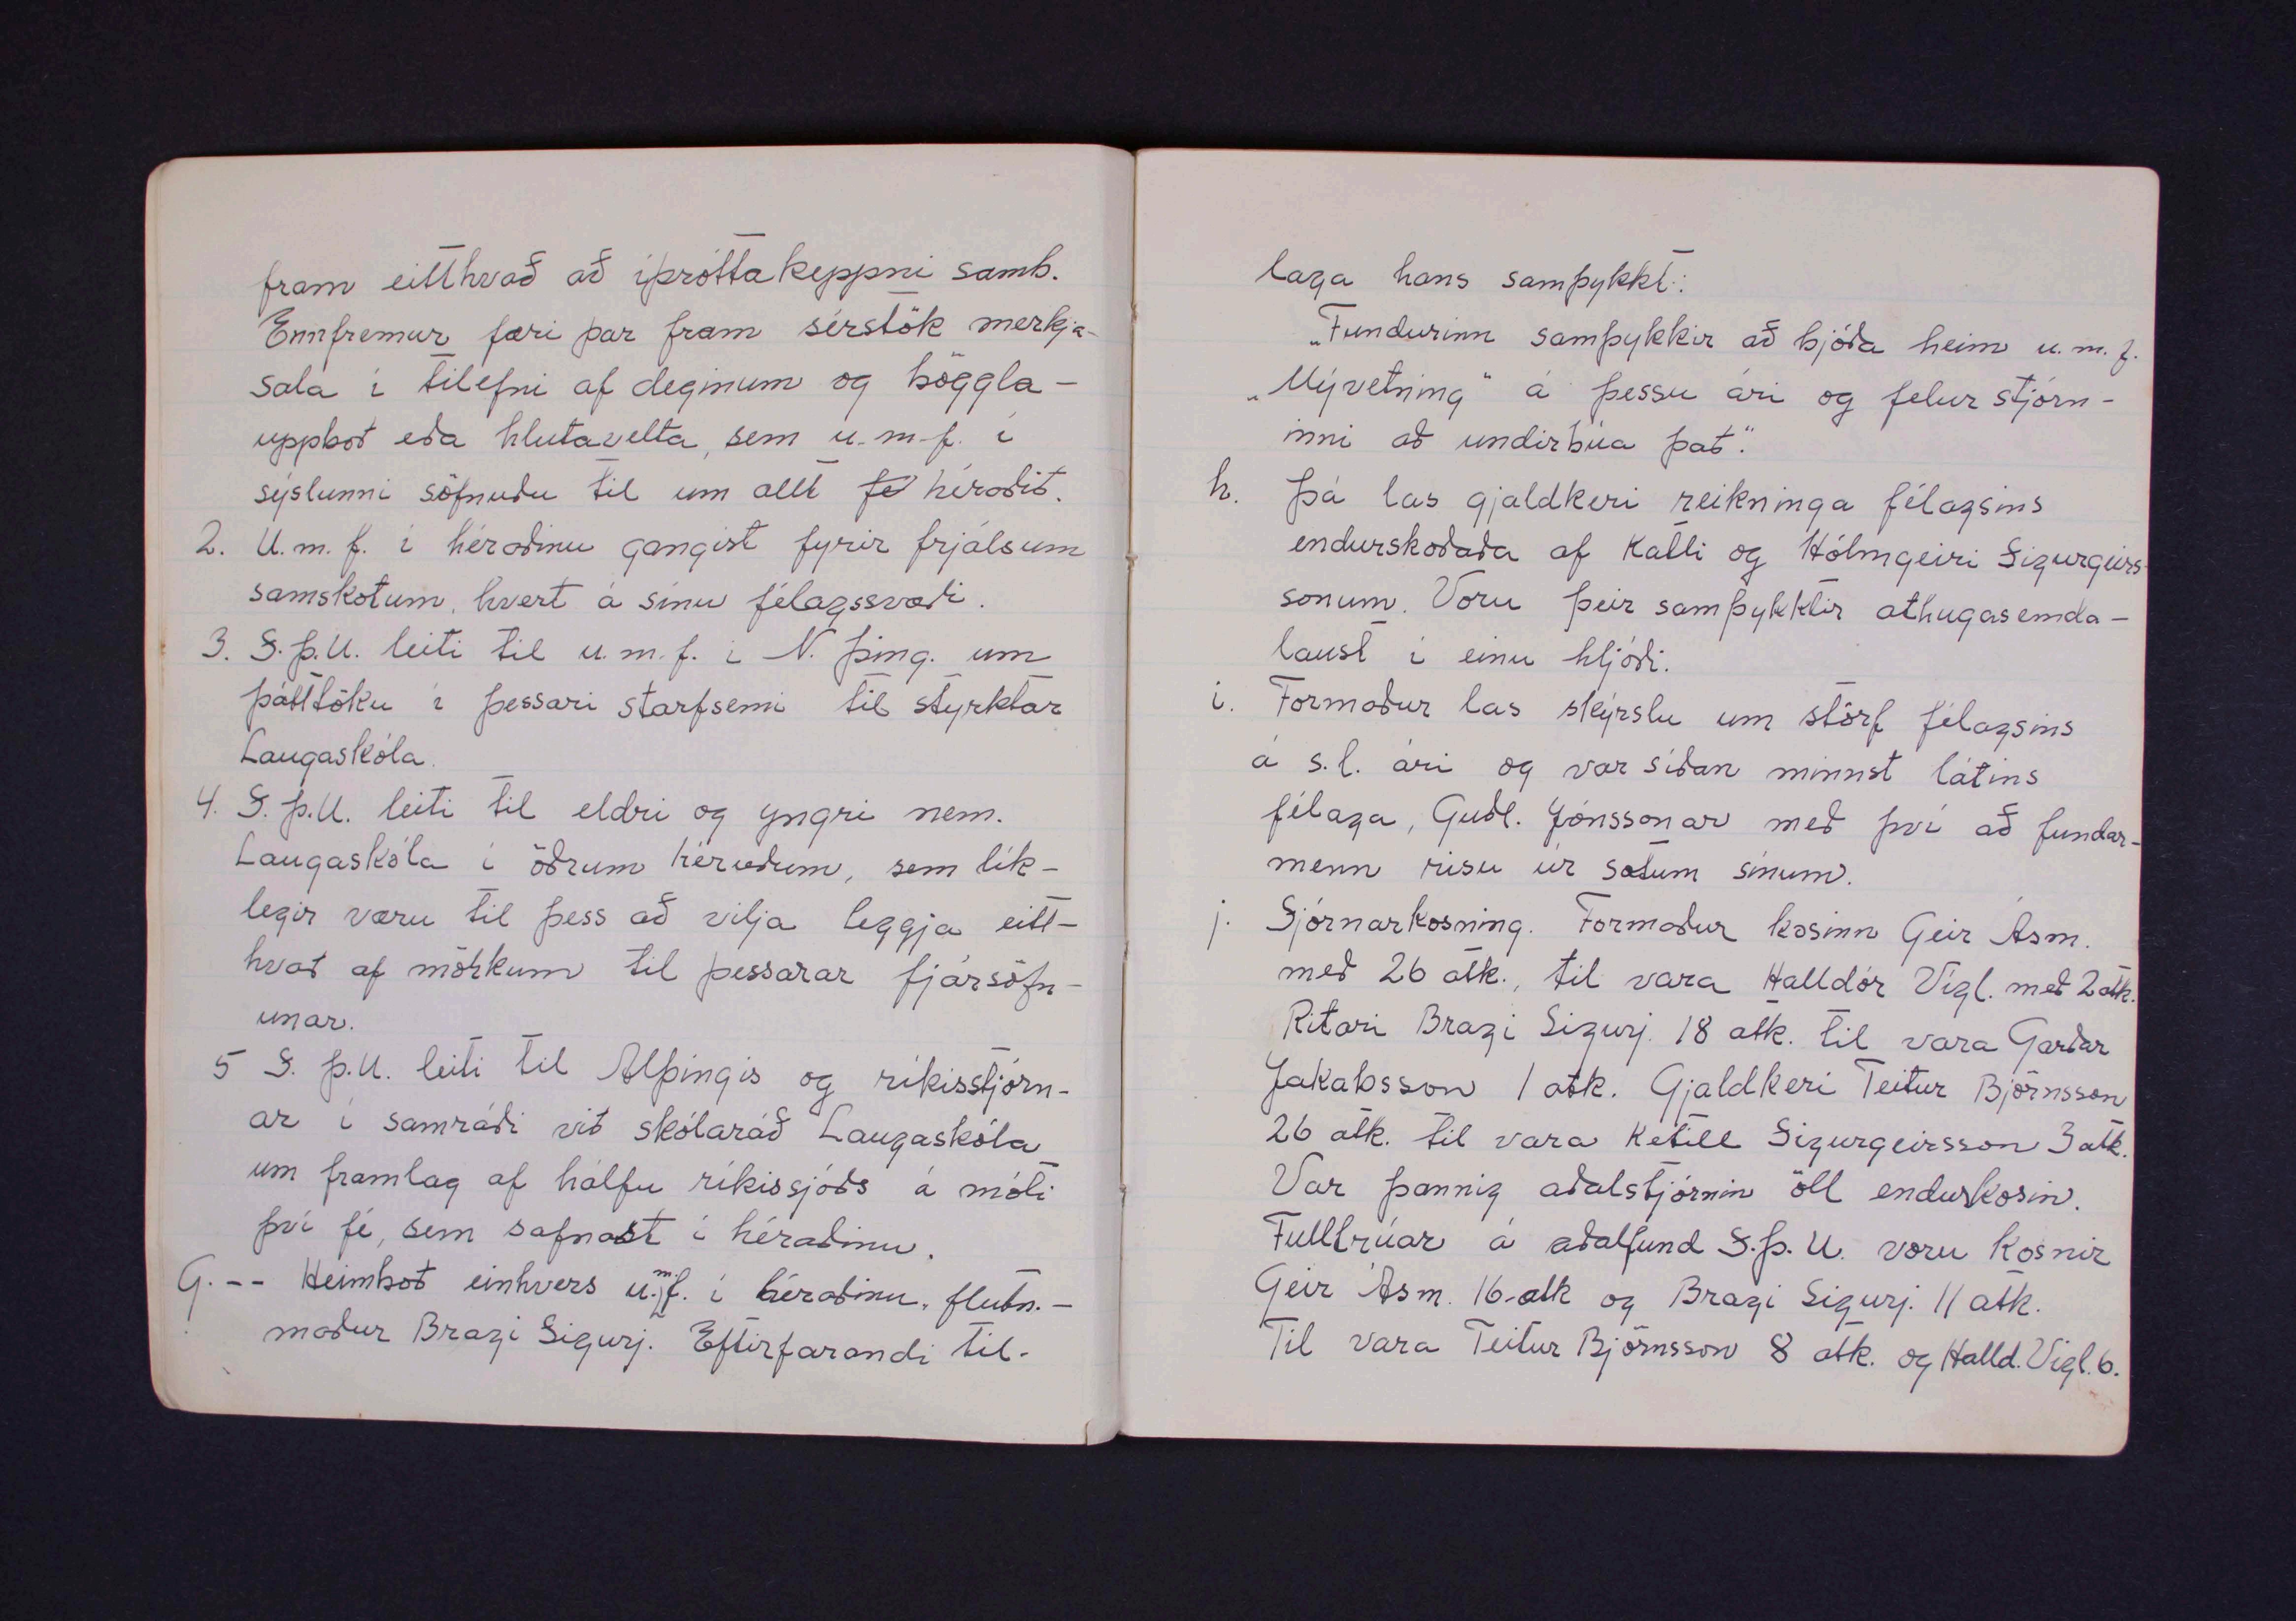 fram eitthvað að íþróttakeppni samb.
Ennfremur færi þar fram sérstök merkja-
sala í tilefni af deginum og böggla-
uppboð eða hlutavelta, sem u.m.f. í
sýslunni söfnuðu til um allt fé héraðið.
2. U.m.f. í héraðinu gangist fyrir frjálsum
samskotum, hvert á sínu félagssvæði.
3. S.þ.U. leiti til u.m.f. í N. þing. um
þátttöku í þessari starfsemi til styrktar
Laugaskóla.
4. S.þ.U. leiti til eldri og yngri nem.
Laugaskóla í öðrum héruðum, sem lík-
legir væru til þess að vilja leggja eitt-
hvað af mörkum til þessarar fjársöfn-
unar.
5 S.þ.U. leiti til Alþingis og ríkisstjórn-
ar í samráði við skólaráð Laugaskóla
um framlag af hálfu ríkissjóðs á móti
því fé, sem safnast í héraðinu.
G. -- Heimboð einhvers u.m.f. í héraðinu, flutn.-
maður Bragi Sigurj. Eftirfarandi til-
laga hans samþykkt:
„Fundurinn samþykkir að bjóða heim u.m.f.
„Mývetning" á þessu ári og felur stjórn-
inni að undirbúa það".
h. Þá las gjaldkeri reikninga félagsins
endurskoðaða af Katli og Hólmgeiri Sigurgeirs-
sonum. Voru þeir samþykktir athugasemda-
laust í einu hljóði.
i. Formaður las skýrslu um störf félagsins
á s.l. ári og var síðan minnst látins
félaga, Guðl. Jónssonar með því að fundar-
menn risu úr sætum sínum.
j. Sjórnarkosning. Formaður kosinn Geir Ásm.
með 26 atk., til vara Halldór Vígl. með 2 atk.
Ritari Bragi Sigurj. 18 atk. til vara Garðar
Jakabsson 1 atk. Gjaldkeri Teitur Björnsson
26 atk. til vara Ketill Sigurgeirsson 3 atk.
Var þannig aðalstjórnin öll endurkosin.
Fulltrúar á aðalfund S.þ.U. voru kosnir
Geir Ásm. 16 atk og Bragi Sigurj. 11 atk.
Til vara Teitur Björnsson 8 atk. og Halld. Vígl. 6.